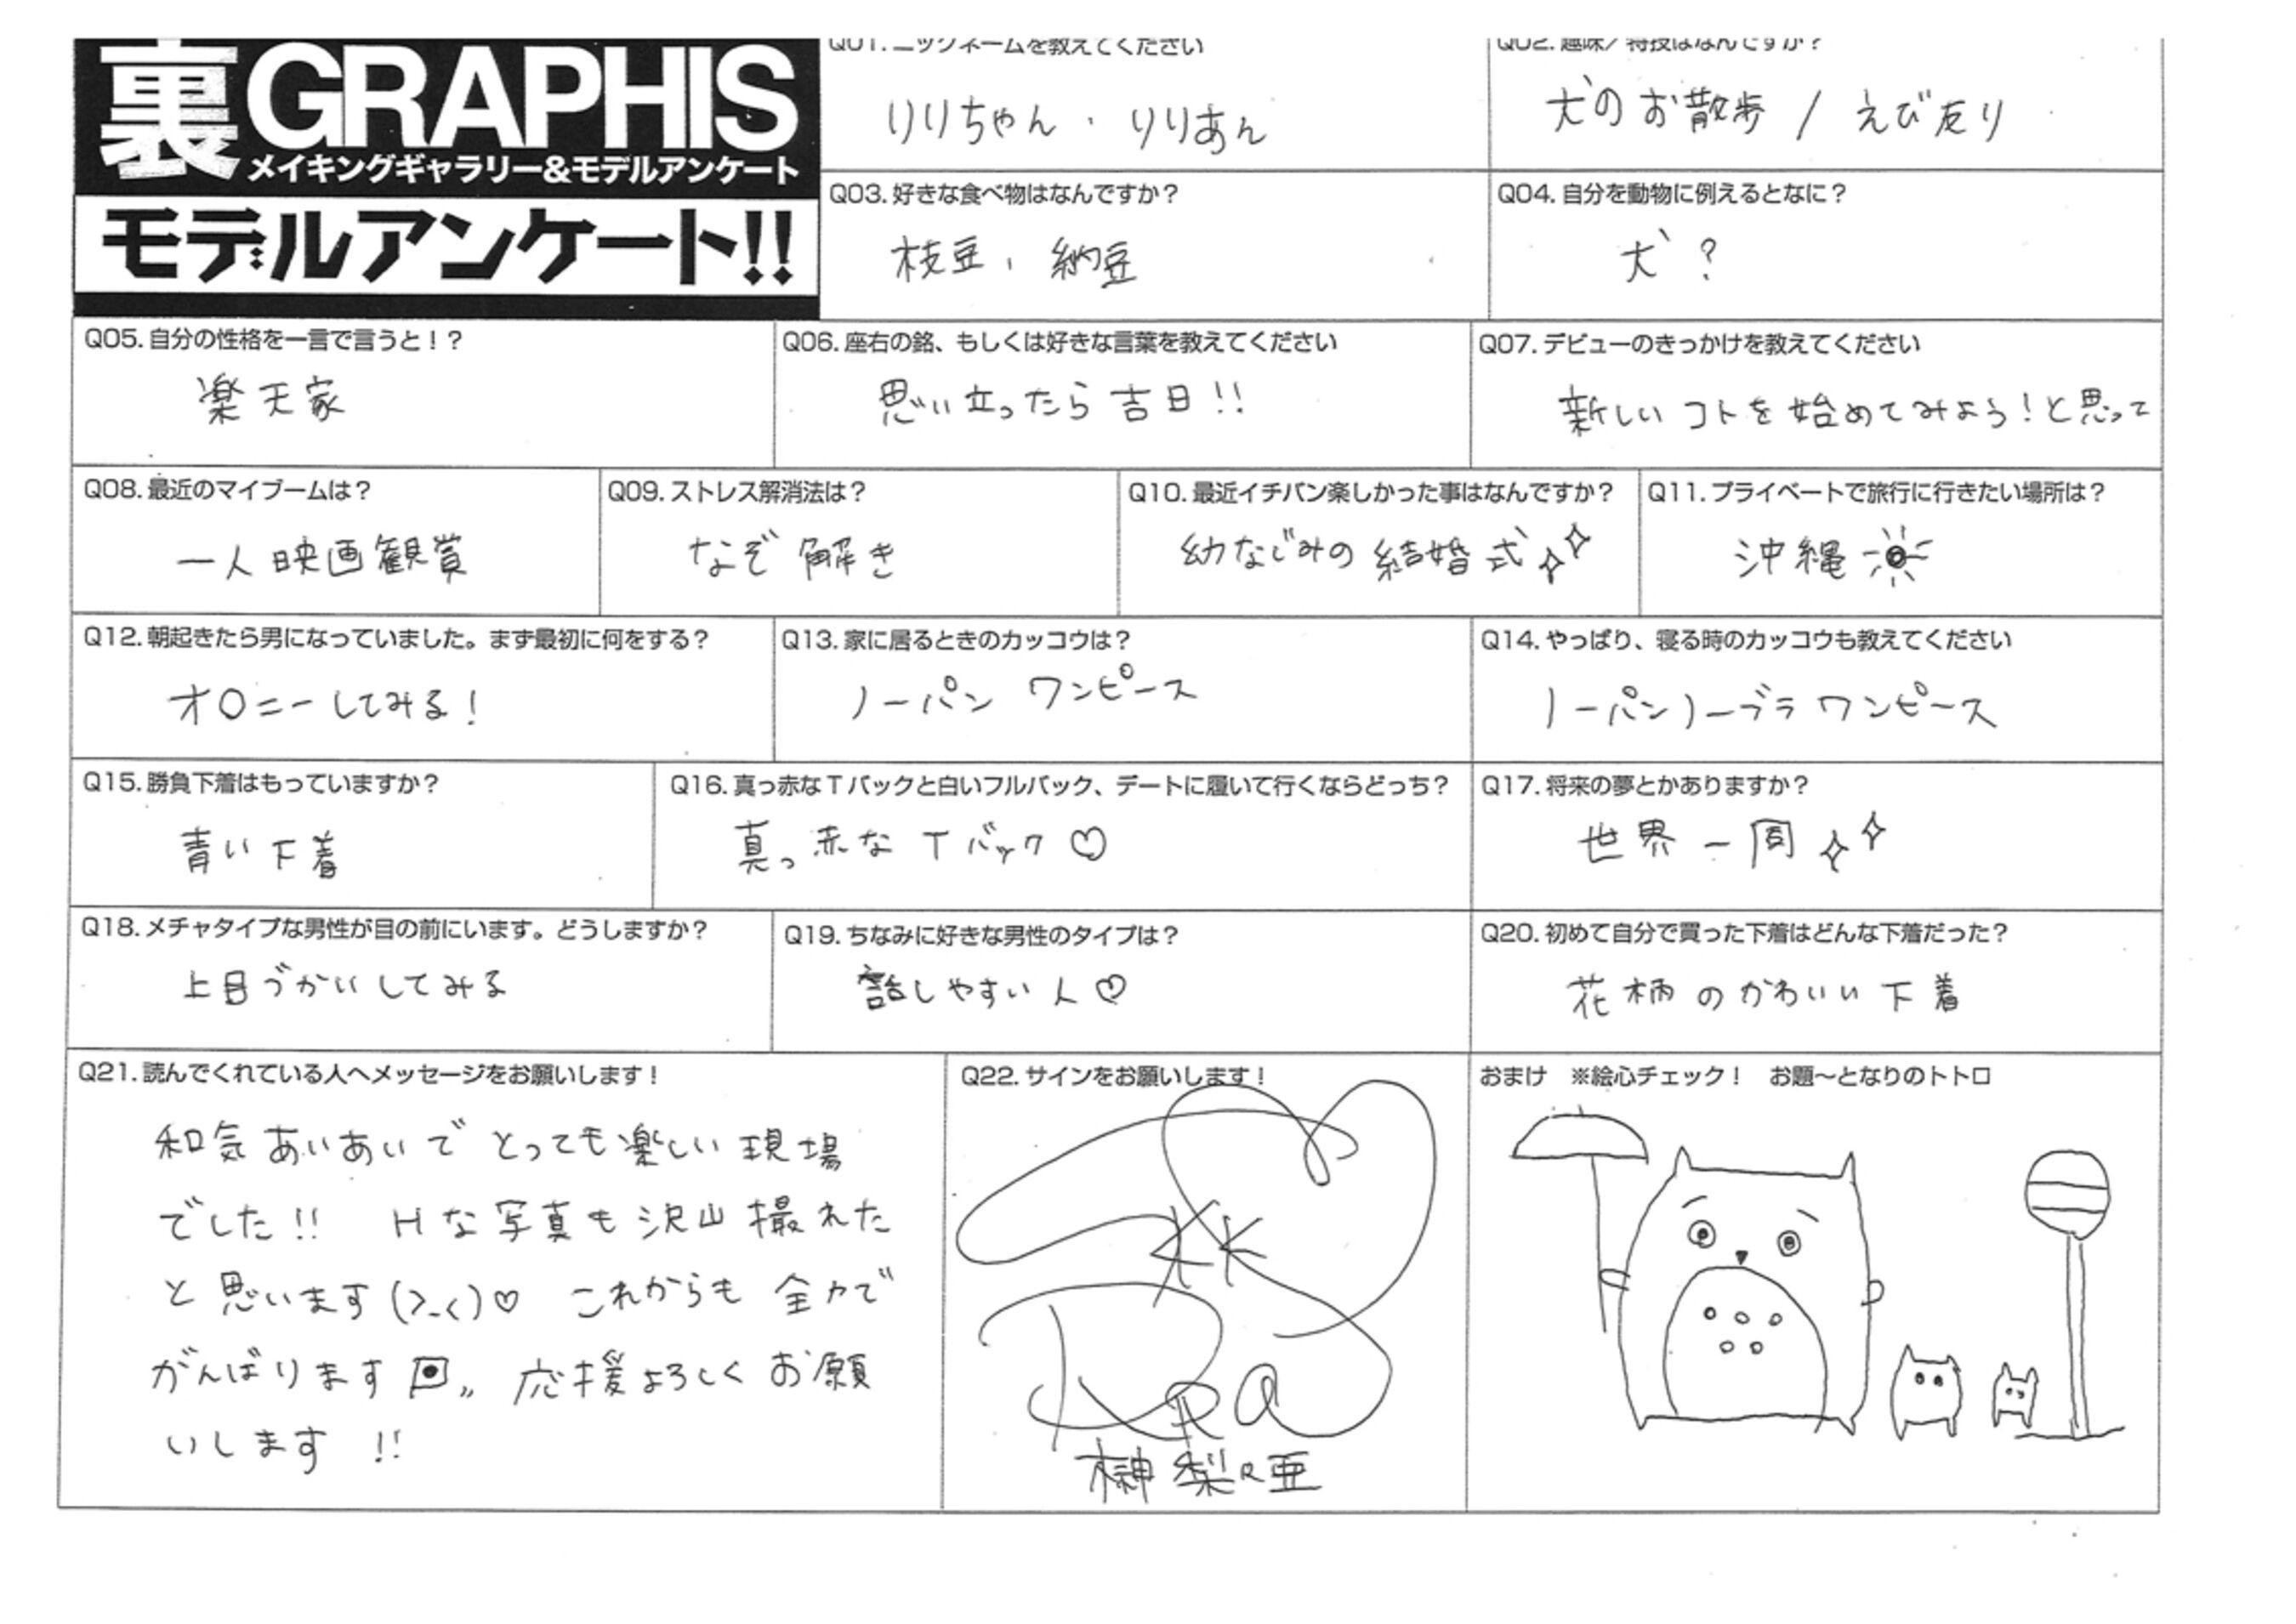 裏GRAPHIS
メイキングギャラリー&モデルアンケート
モデルアンケート!!
Q01. ニックネームを教えてください
りりちゃん、りりあん
Q02. 趣味/特技はなんですか?
犬のお散歩 / えび反り
Q03. 好きな食べ物はなんですか?
枝豆、納豆
Q04. 自分を動物に例えるとなに?
犬?
Q05. 自分の性格を一言で言うと!?
楽天家
Q06. 座右の銘、もしくは好きな言葉を教えてください
思い立ったら吉日!!
Q07. デビューのきっかけを教えてください
新しいコトを始めてみよう!と思って
Q08. 最近のマイブームは?
一人映画観賞
Q09. ストレス解消法は?
なぞ解き
Q10. 最近イチバン楽しかった事はなんですか?
幼なじみの結婚式
Q11. プライベートで旅行に行きたい場所は?
沖縄
Q12. 朝起きたら男になっていました。まず最初に何をする?
オ〇ニーしてみる!
Q13. 家に居るときのカッコウは?
ノーパン ワンピース
Q14. やっぱり、寝る時のカッコウも教えてください
ノーパンノーブラ ワンピース
Q15. 勝負下着はもっていますか?
青い下着
Q16. 真っ赤なTバックと白いフルバック、デートに履いて行くならどっち?
真っ赤なTバック♡
Q17. 将来の夢とかありますか?
世界一周
Q18. メチャタイプな男性が目の前にいます。どうしますか?
上目づかいしてみる
Q19. ちなみに好きな男性のタイプは?
話しやすい人♡
Q20. 初めて自分で買った下着はどんな下着だった?
花柄のかわいい下着
Q21. 読んでくれている人へメッセージをお願いします!
和気あいあいでとっても楽しい現場
でした!! Hな写真も沢山撮れた
と思います(>_<)♡ これからも全力で
がんばります 応援よろしくお願
いします!!
Q22. サインをお願いします!
榊梨々亜
おまけ ※絵心チェック! お題〜となりのトトロ